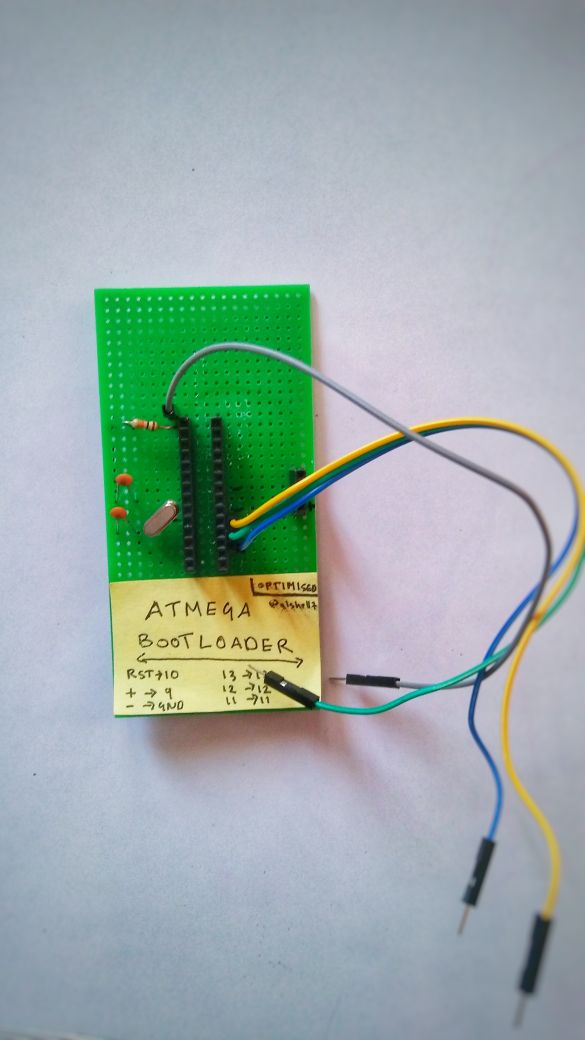 OPTIMISED
ATMEGA
BOOTLOADER
RST→10
+ → 9
- → GND
13 →
12 → 12
11 → 11